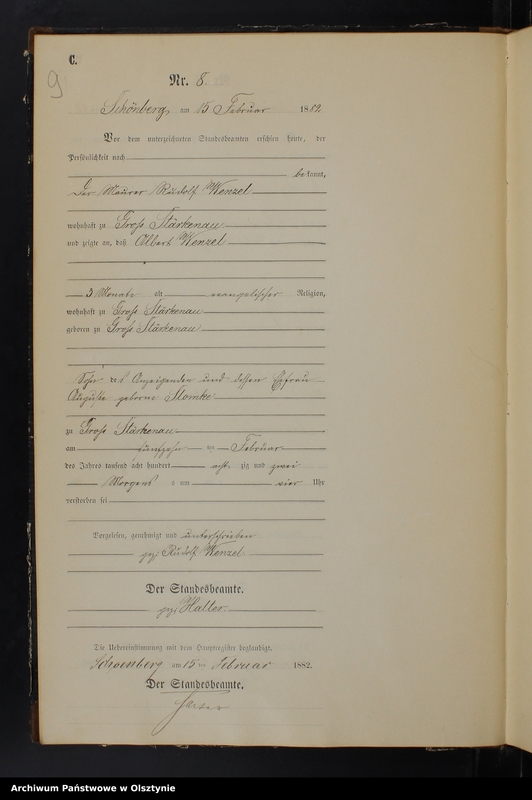 C.
9
Nr. 8.
Schönberg, am 15 Februar 1882.
Vor dem unterzeichneten Standesbeamten erschien heute, der
Persönlichkeit nach
bekannt,
der Maurer Rudolf Wenzel
wohnhaft zu Groß Stärkenau
und zeigte an, daß Albert Wenzel
3 Monate alt evangelischer Religion,
wohnhaft zu Groß Stärkenau
geboren zu Groß Stärkenau
Sohn des Anzeigenden und dessen Ehefrau
Auguste geborne Slomke
zu Groß Stärkenau
am funfzehn ten Februar
des Jahres tausend acht hundert acht zig und zwei
Morgens um vier Uhr
verstorben sei
Vorgelesen, genehmigt und unterschrieben
gez. Rudolf Wenzel
Der Standesbeamte.
gez. Halter.
Die Uebereinstimmung mit dem Hauptregister beglaubigt.
Schoenberg am 15 ten Februar 1882.
Der Standesbeamte.
Archiwum Państwowe w Olsztynie